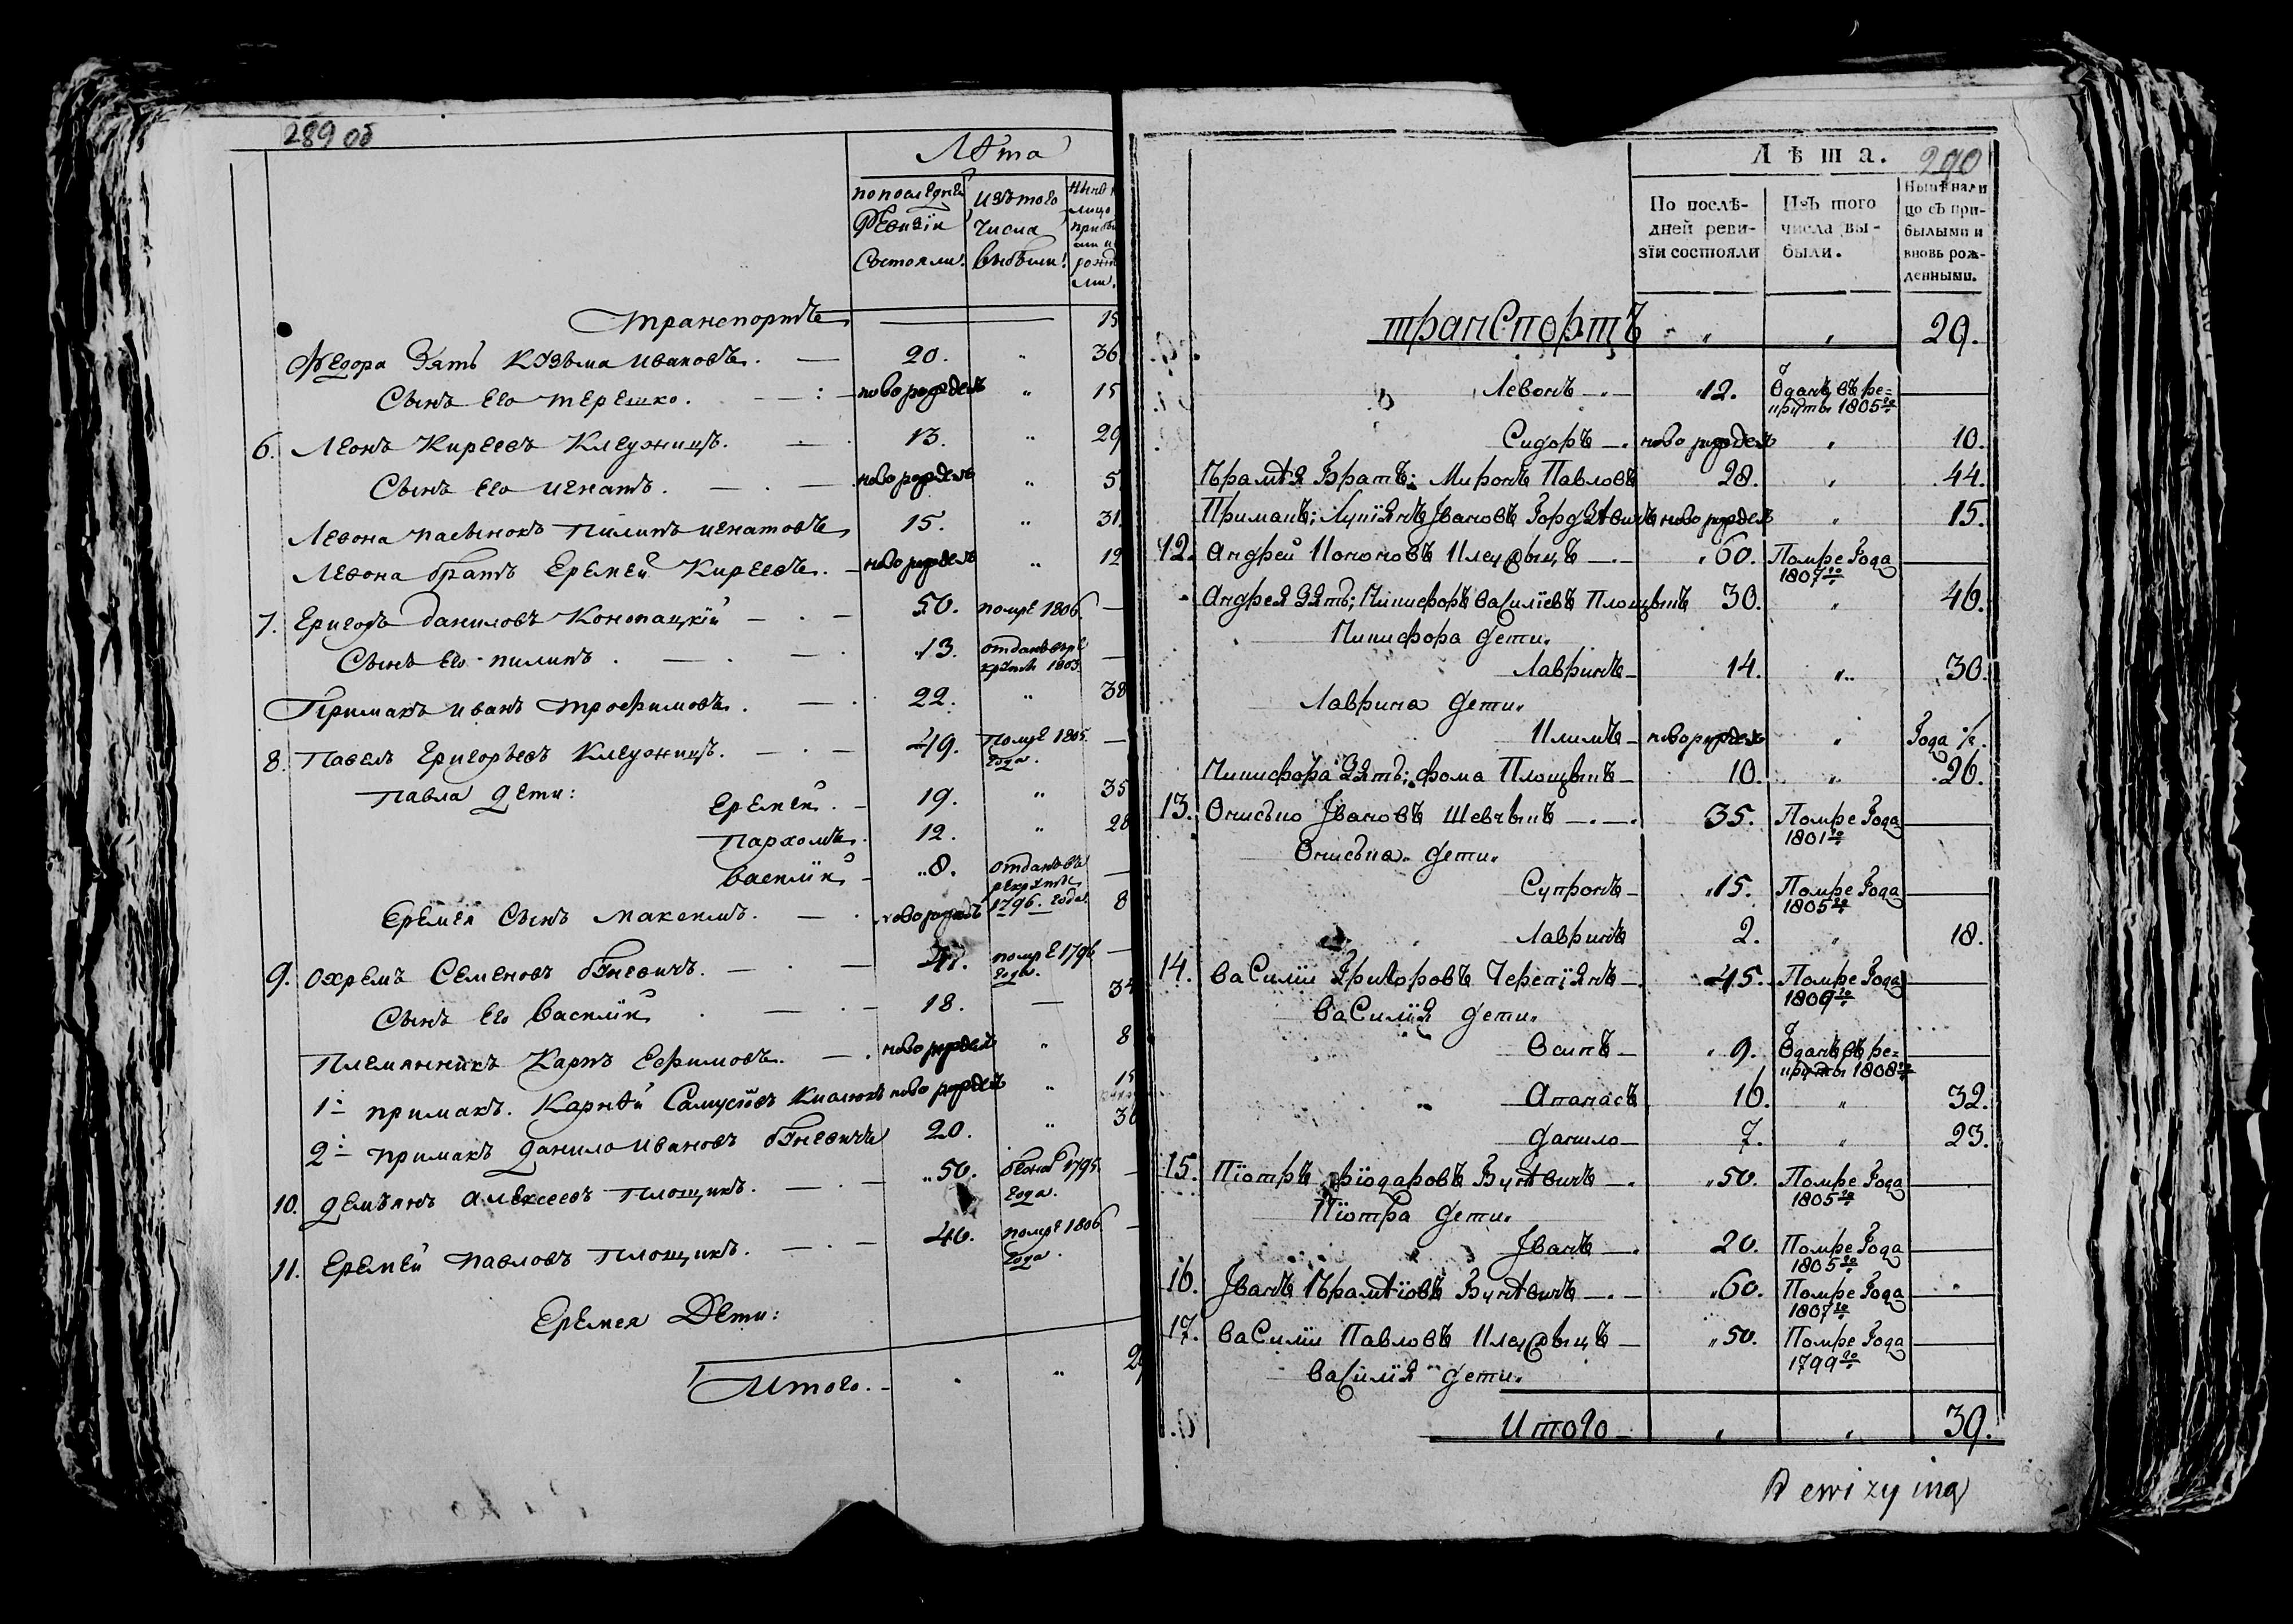 289 об
Лѣта
по последней Ревизіи Состояли.
изъ того Числа выбыли.
транспортъ 15
Федора Зять Козьма Ивановъ. 20. „ 36
Сынъ Его терешко. ново рожденъ „ 15
6. Леонъ Киреевъ Клеузницъ. 13. „ 29
Сынъ Его Игнатъ. ново рожденъ „ 5
Левона пасынокъ пилипъ игнатовъ 15. „ 31.
Левона братъ Еремей Киреевъ. ново рожденъ „ 12
7. Григоръ даниловъ Конопацкій 50. помре 1806. —
Сынъ Его пилипъ. 13. отданъ въ ре крути 1803. —
Примакъ иванъ трофимовъ. 22. „ 38
8. Павелъ Григорьевъ Клеузницъ. 49. Помре 1805. года. —
Павла дети: Еремей. 19. „ 35
Пархомъ. 12. „ 28
Василій 8. отданъ въ рекруты 1796. года —
Еремея Сынъ Максимъ. ново рожденъ 8
9. Охремъ Семеновъ 41. помре 1796 года. —
Сынъ Его Василій 18. — 34
Племянникъ Карпъ Ефимовъ. ново рожденъ „ 8
1й примакъ. Карнѣй ново рожденъ „ 15
2й примакъ данило ивановъ 20. „ 36
10. демьянъ Алексеевъ Площикъ. 50. бежал 1795. года. —
11. Еремей Павловъ Площикъ. 46. помре 1806. года. —
Еремея Дети:
Итого. „ „ 29
290
Лѣта.
По послѣдней ревизіи состояли
Изъ того числа выбыли.
Нынѣ на лицо съ прибылыми и вновь рожденными.
транспортъ „ „ 29.
Левонъ 12. Ѿданъ въ рекруты 1805го —
Сидоръ ново рожденъ „ 10.
Ърамѣя Братъ; Миронъ Павловъ 28. „ 44.
Примакъ; Лукіянъ Ивановъ ново рожденъ „ 15.
12. Андрей Кононовъ 60. Помре Года 1807го —
Андрея Зять; Никифоръ василіевъ Площыкъ 30. „ 46.
Никифора дети.
Лавринъ 14. „ 30.
Лаврина дети.
Климъ ново рожденъ „ Года ½.
Никифора Зять; фома Площыкъ 10. „ 26.
13. Онисько Ивановъ Шевчыкъ 35. Помре Года 1801го —
Ониська дети.
Супронъ 15. Помре Года 1805го —
Лавринъ 2. „ 18.
14. василіи Григоровъ Черепіянъ 45. Помре Года 1809го —
василія дети.
Есипъ 9. Ѿданъ въ рекруты 1808го —
Апанасъ 16. „ 32.
данило 7. „ 23.
15. Піотръ Ѳіодаровъ Буцѣвичъ 50. Помре Года 1805го —
Піотра дети.
Иванъ 20. Помре Года 1805го —
16. Иванъ Ърамѣіовъ Буцѣвичъ 60. Помре Года 1807го —
17. василіи Павловъ 50. Помре Года 1799го —
василія дети.
Итого „ „ 39.
Rewizyina